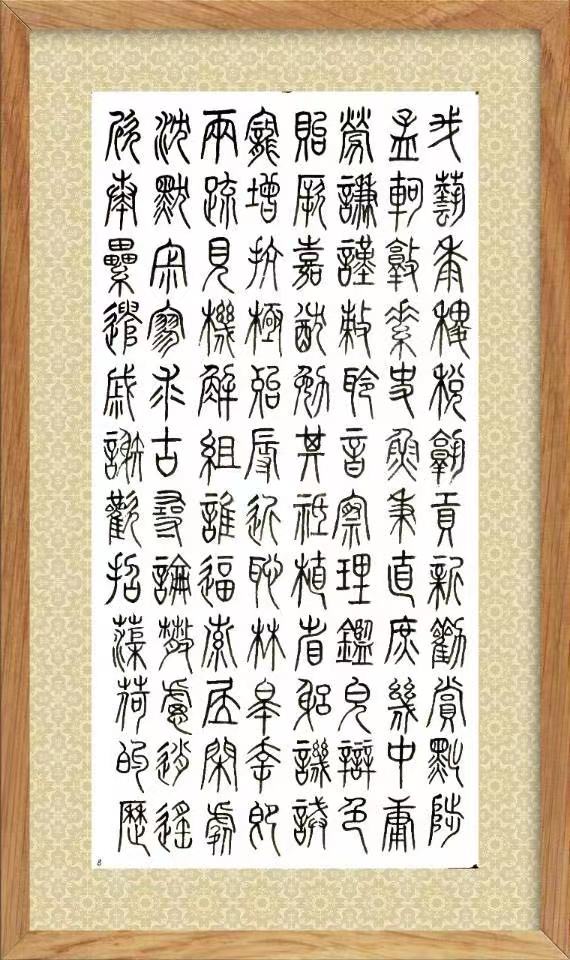 我藝黍稷稅熟貢新勸賞黜陟
孟軻敦素史魚秉直庶幾中庸
勞謙謹敕聆音察理鑑皃辯色
貽厥嘉猷勉其祗植省躬譏誡
寵增抗極殆辱近恥林皋幸即
兩疏見機解組誰逼索居閑處
沈默寂寥求古尋論散慮逍遙
欣奏纍遣戚謝歡招蕖荷的歷
8